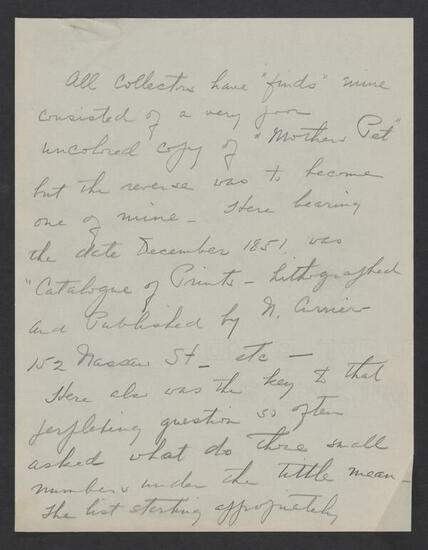 All Collectors have "finds" mine
consisted of a very poor
uncolored copy of "Mothers Pet"
but the reverse was to become
one of mine - Here bearing
the date December 1851 was
"Catalogue of Prints - Lithographed
and Published by N. Currier
152 Nassau St - etc -
Here also was the key to that
perplexing question so often
asked what do those small
numbers under the tittle mean -
The list starting appropiately